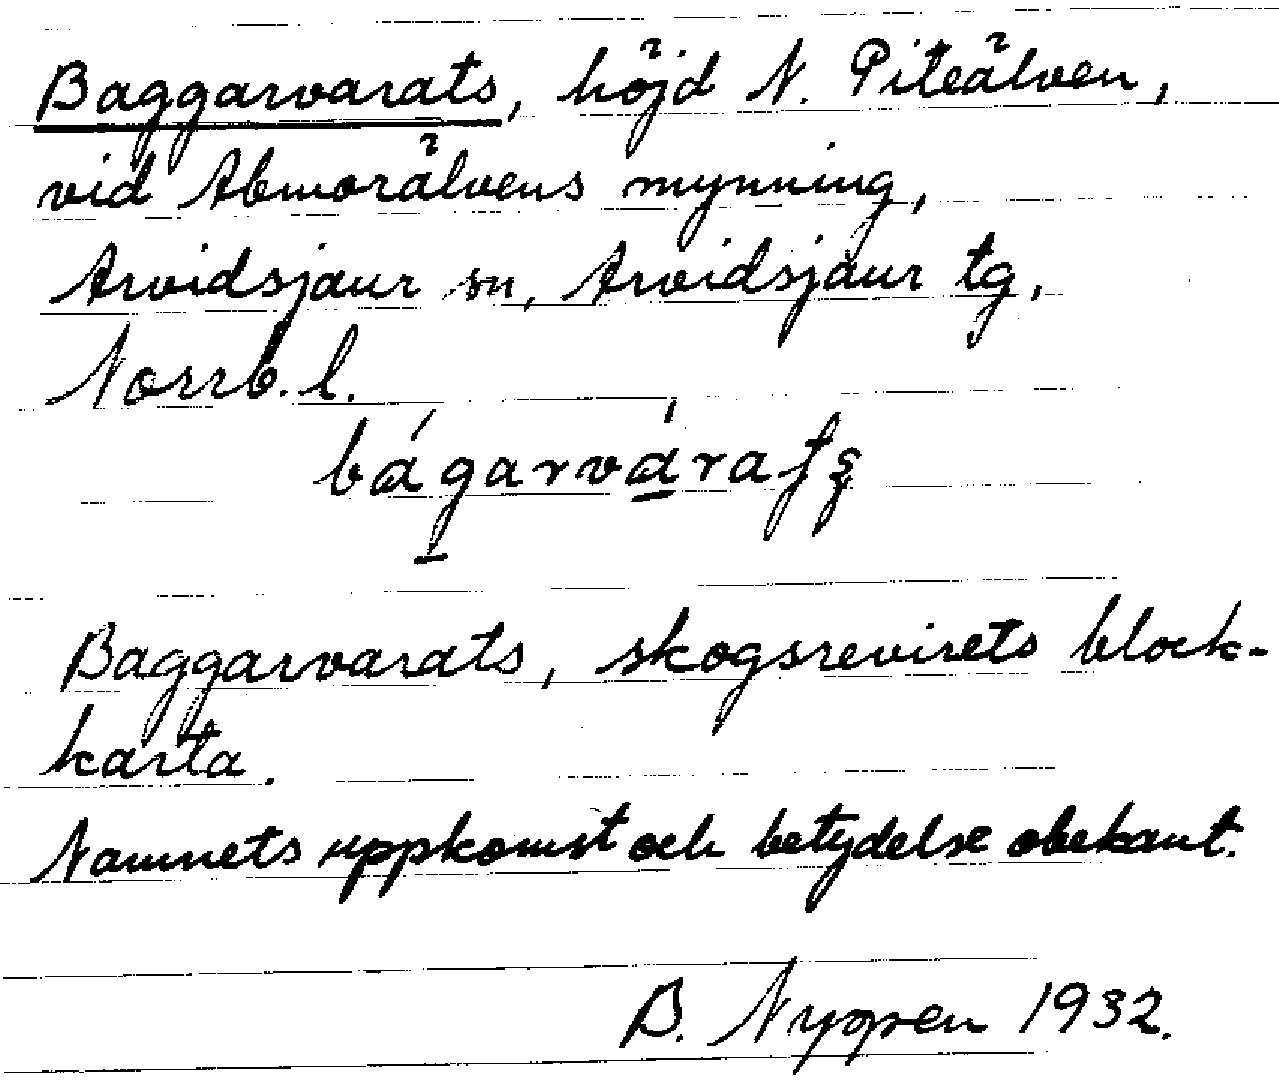 Baggarvarats, höjd N. Piteälven,
vid Abmorälvens mynning,
Arvidsjaur sn, Arvidsjaur tg,
Norrb. l.
Baggarvarats, skogsrevirets block-
karta.
Namnets uppkomst och betydelse obekant.
B. Nygren 1932.